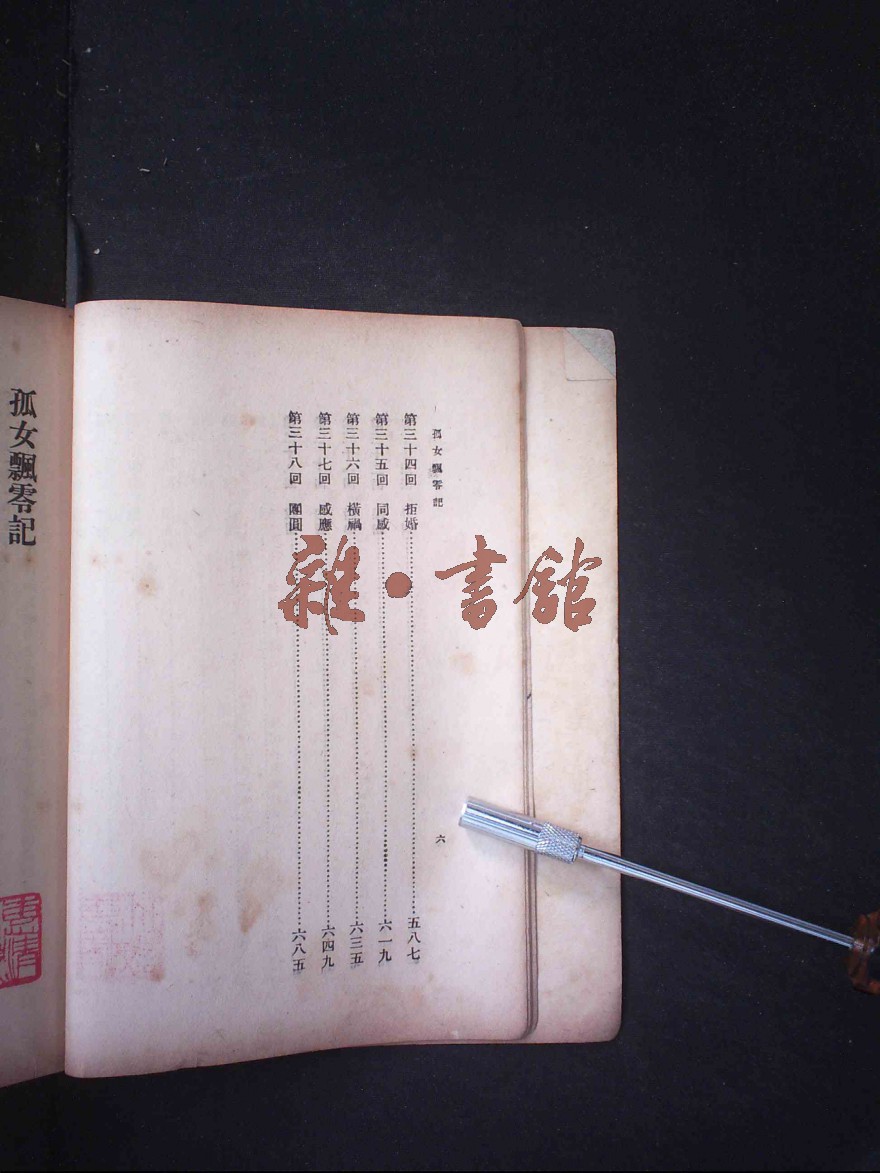 孤女飄零記
六
第三十四回 拒婚……五八七
第三十五回 同感……六一九
第三十六回 橫禍……六三五
第三十七回 感應……六四九
第三十八回 團圓……六八五
孤女飄零記
雜·書館